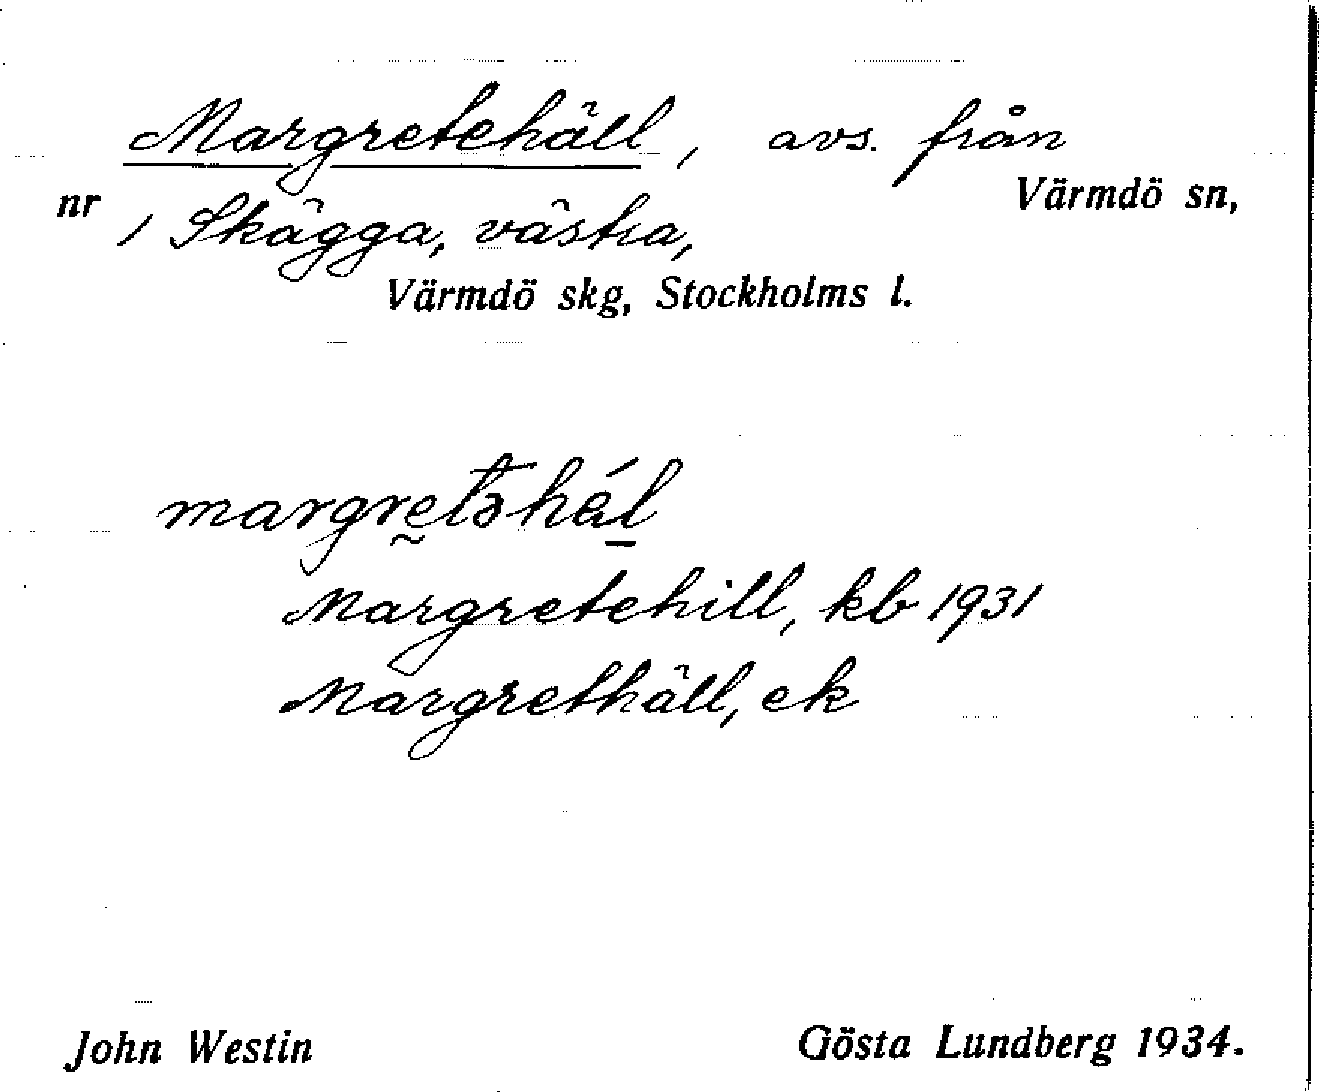 Margretehäll, avs. från
Värmdö sn,
nr 1 Skägga, västra,
Värmdö skg, Stockholms l.
margrḛtəhál̲
Margretehill, kb 1931
Margrethäll, ek
John Westin Gösta Lundberg 1934.